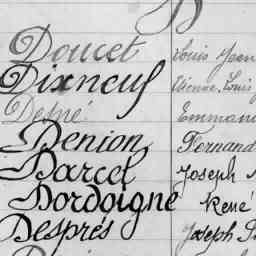 D
Doucet Louis Jean
Dixneuf Etienne Louis
Desné Emmanu
Denion Fernand
Darcel Joseph
Dordoigne René
Després Joseph